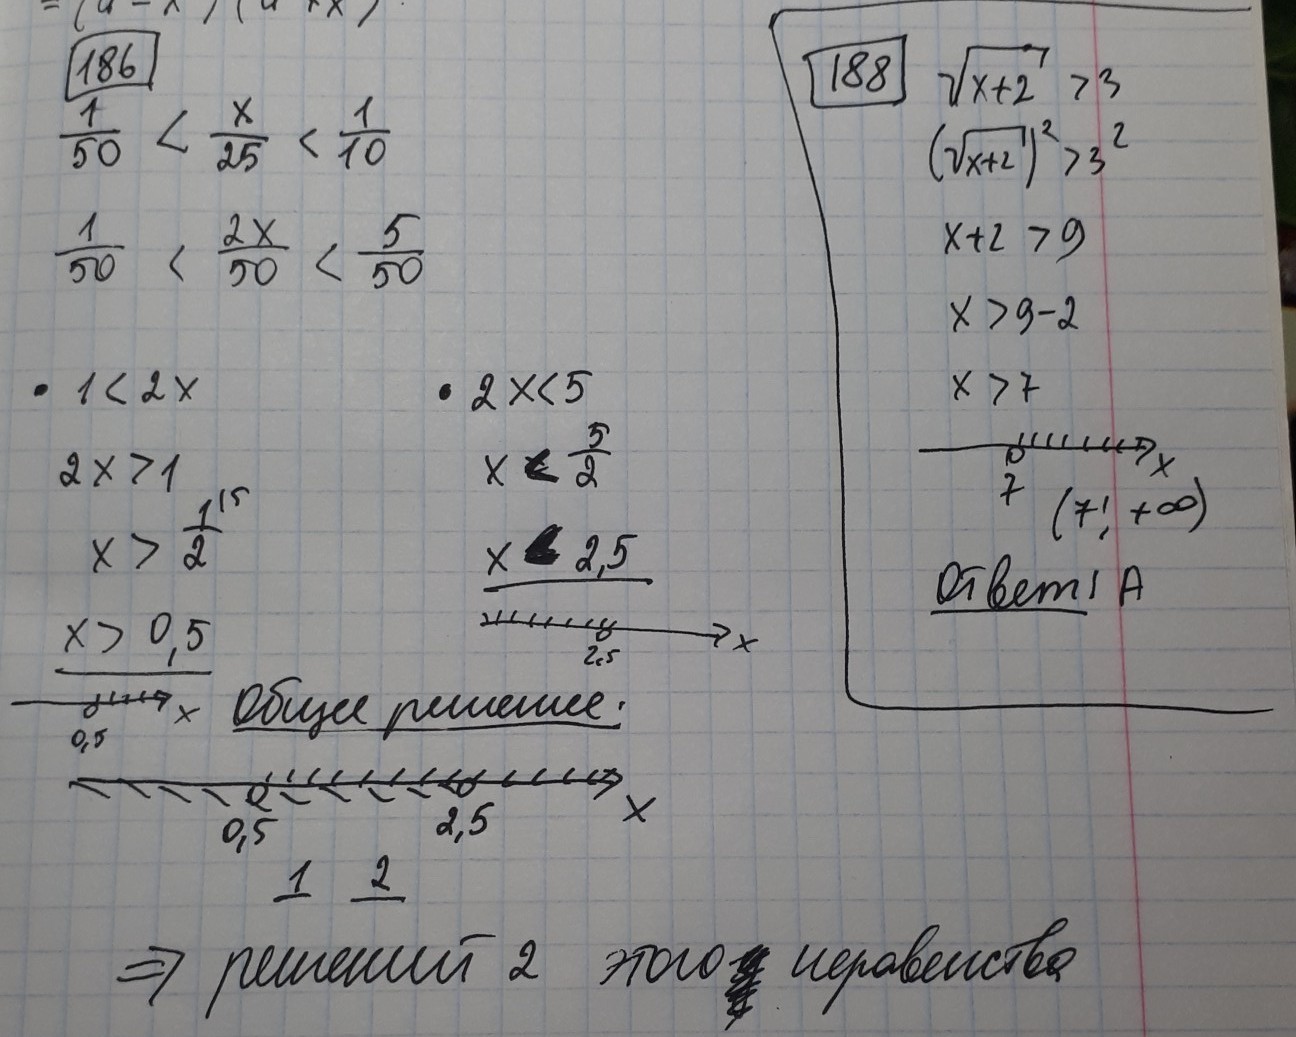 = (a - x) (a + x)
186
1/50 < x/25 < 1/10
1/50 < 2x/50 < 5/50
• 1 < 2x
2x > 1
x > 1/2
x > 0,5
x
0,5
• 2x < 5
x < 5/2
x < 2,5
x
2,5
Общее решение:
0,5 2,5 x
1 2
⇒ решений 2 этого неравенства
188 √x+2 > 3
(√x+2)² > 3²
x+2 > 9
x > 9-2
x > 7
x
7 (7; +∞)
Ответ: А